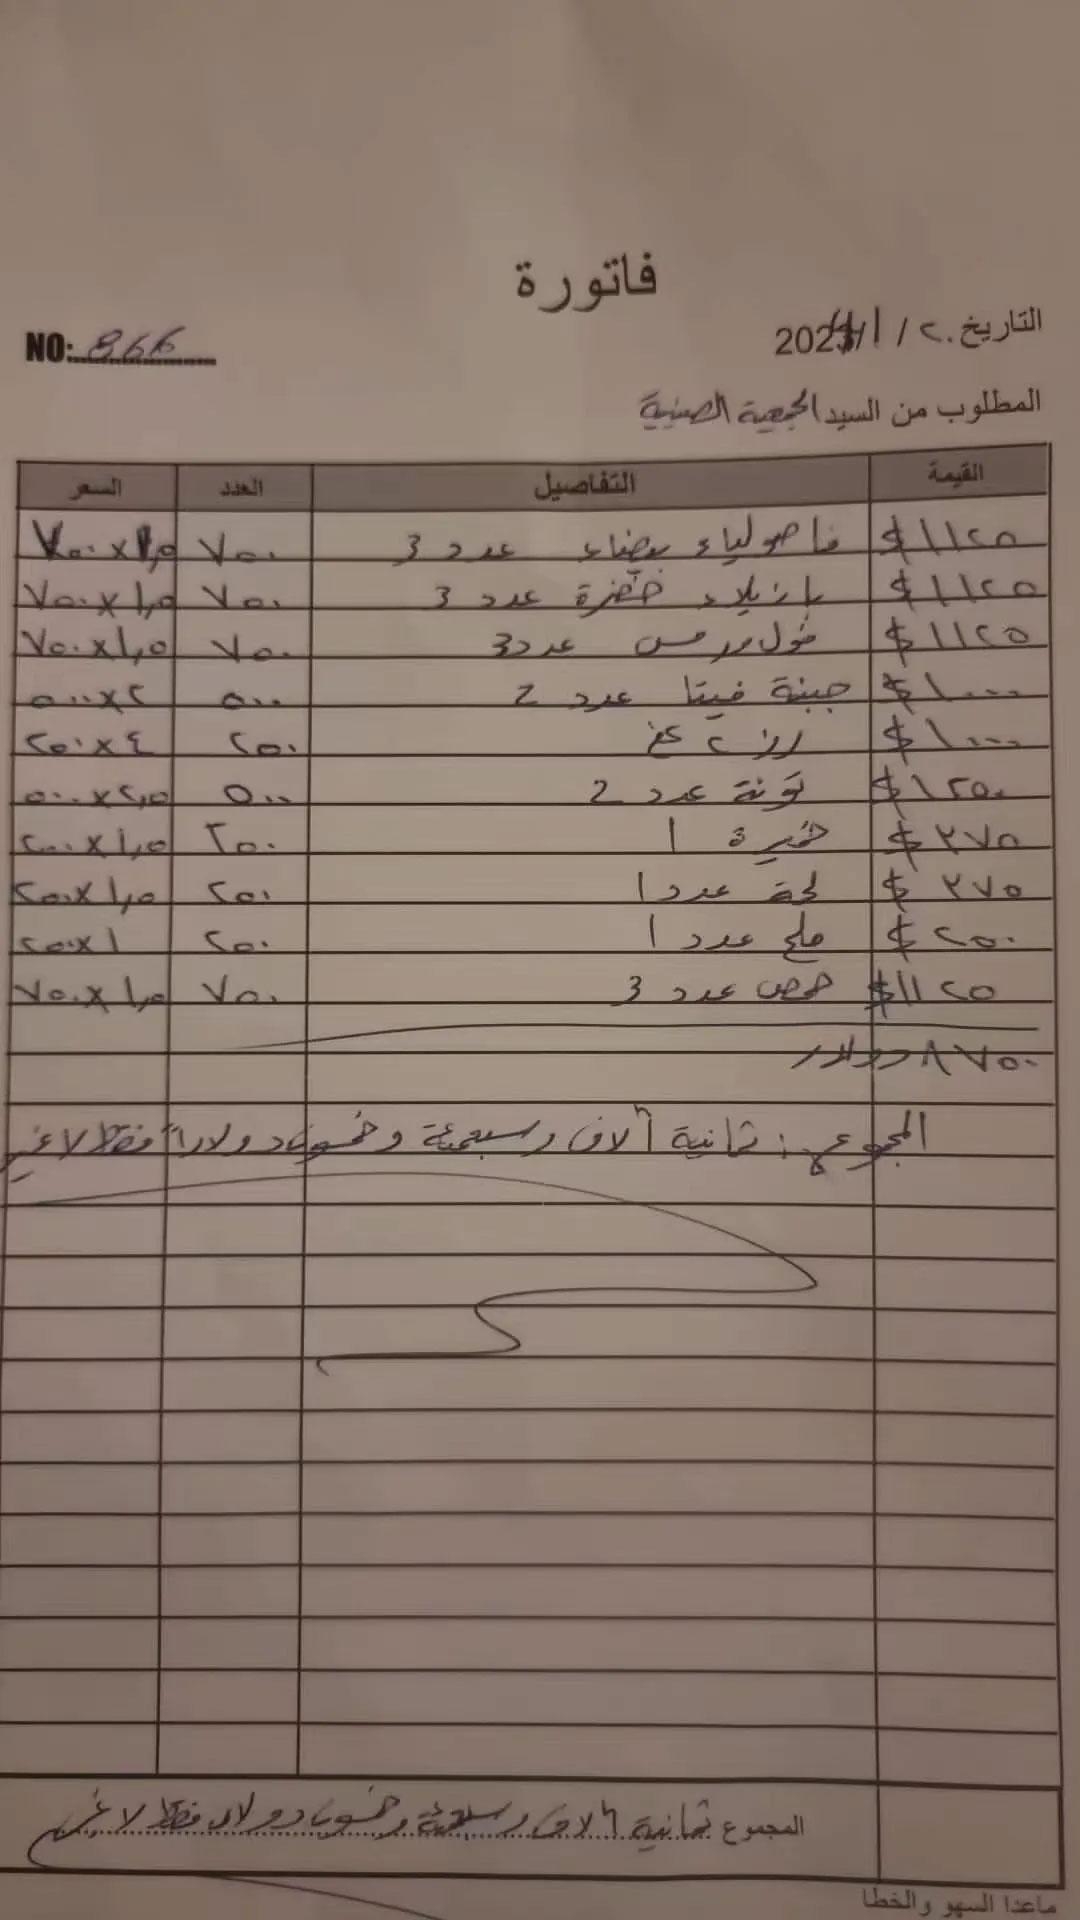 فاتورة
NO: 866
التاريخ ٢٠ / ١ / 2024
المطلوب من السيد الجمعية الصينية
القيمة التفاصيل العدد السعر
$١١٢٥ فاصولياء بيضاء عدد 3 ٧٥٠ ٧٥٠×١,٥
$١١٢٥ بازيلاء خضرة عدد 3 ٧٥٠ ٧٥٠×١,٥
$١١٢٥ فول عدد 3 ٧٥٠ ٧٥٠×١,٥
$١٠٠٠ جبنة فيتا عدد 2 ٥٠٠ ٥٠٠×٢
$١٠٠٠ رز ٢ كغ ٢٥٠ ٢٥٠×٤
$١٢٥٠ تونة عدد 2 ٥٠٠ ٥٠٠×٢,٥
$٣٧٥ خميرة ١ ٢٥٠ ×١,٥
$٣٧٥ عدد ١ ٢٥٠ ٢٥٠×١,٥
$٢٥٠ ملح عدد ١ ٢٥٠ ٢٥٠×١
$١١٢٥ حمص عدد 3 ٧٥٠ ٧٥٠×١,٥
٨٧٥٠ دولار
المجموع : ثمانية آلاف وسبعمئة وخمسون دولاراً فقط لا غير
المجموع ثمانية آلاف وسبعمئة وخمسون دولار فقط لا غير
ماعدا السهو والخطا